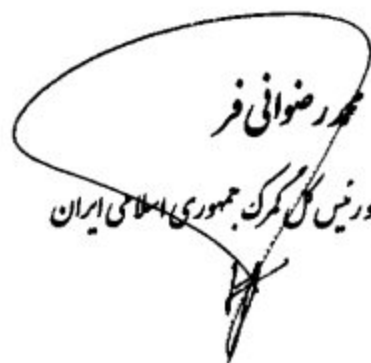 محمد رضوانی فر
و رئیس کل گمرک جمهوری اسلامی ایران